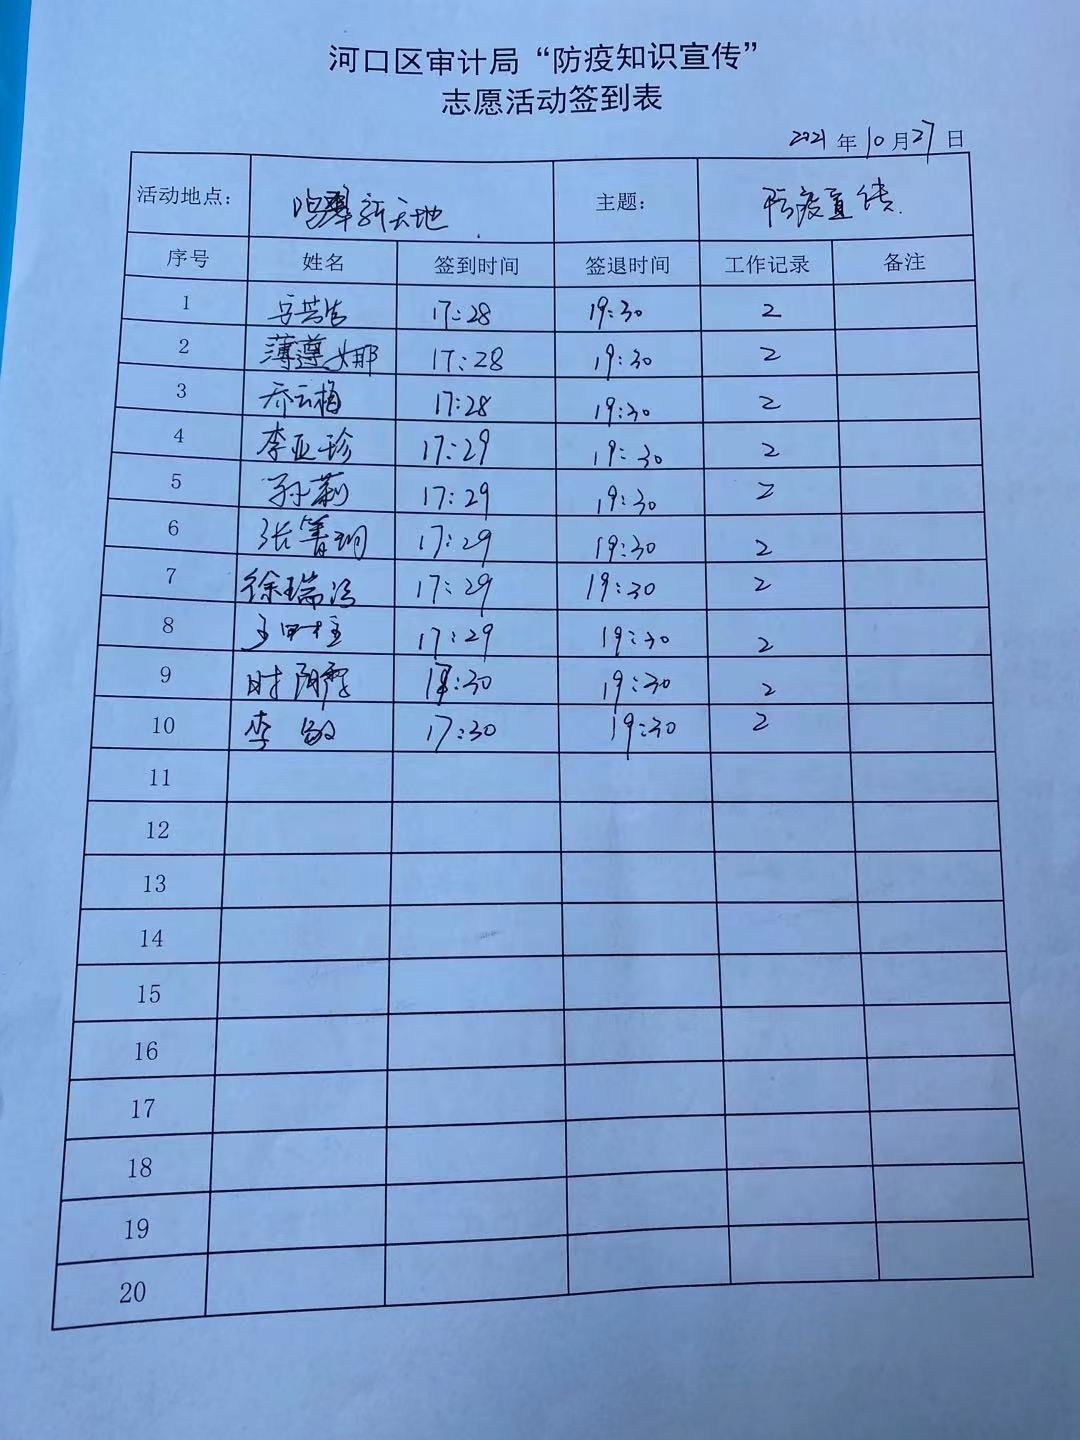 河口区审计局“防疫知识宣传”
志愿活动签到表
2021 年 10 月 27 日
活动地点： 新天地 主题： 防疫宣传
序号 姓名 签到时间 签退时间 工作记录 备注
1 17:28 19:30 2
2 薄遵娜 17:28 19:30 2
3 乔云梅 17:28 19:30 2
4 李亚珍 17:29 19:30 2
5 孙莉 17:29 19:30 2
6 张箐玥 17:29 19:30 2
7 徐瑞 17:29 19:30 2
8 17:29 19:30 2
9 时 17:30 19:30 2
10 李敏 17:30 19:30 2
11
12
13
14
15
16
17
18
19
20